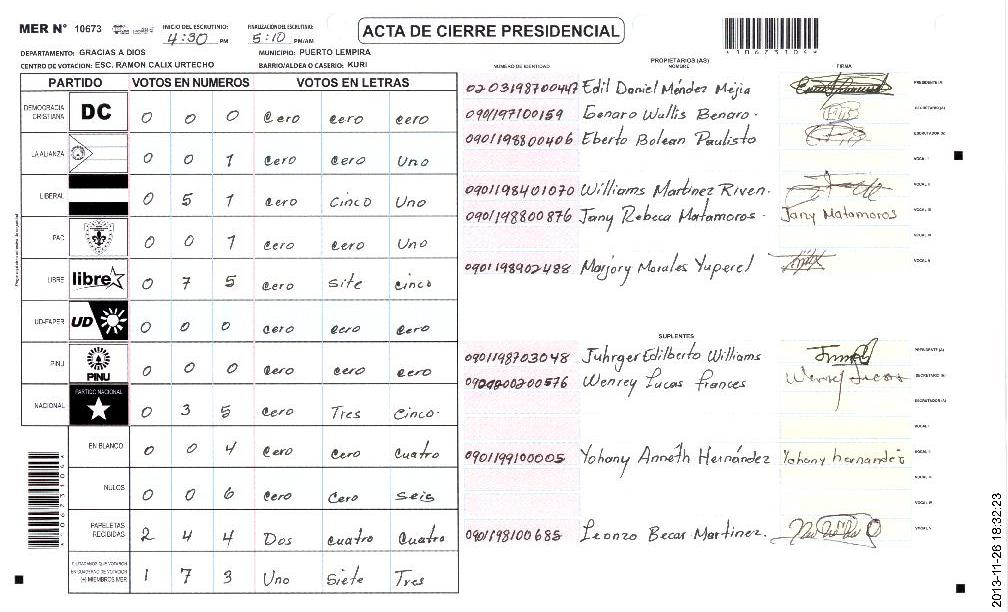 MER N° 10673
INICIO DEL ESCRUTINIO: 4:30 PM
FINALIZACIÓN DEL ESCRUTINIO: 5:10 PM/AM
ACTA DE CIERRE PRESIDENCIAL
*10673104*
DEPARTAMENTO: GRACIAS A DIOS
MUNICIPIO: PUERTO LEMPIRA
CENTRO DE VOTACION: ESC. RAMON CALIX URTECHO
BARRIO/ALDEA O CASERIO: KURI
PARTIDO VOTOS EN NUMEROS VOTOS EN LETRAS
DEMOCRACIA CRISTIANA DC 0 0 0 cero cero cero
LA ALIANZA 0 0 1 cero cero Uno
LIBERAL 0 5 1 cero cinco Uno
PAC 0 0 1 cero cero Uno
LIBRE libre 0 7 5 cero site cinco
UD-FAPER UD 0 0 0 cero cero cero
PINU PINU 0 0 0 cero cero cero
NACIONAL PARTIDO NACIONAL 0 3 5 cero Tres cinco.
EN BLANCO 0 0 4 cero cero cuatro
NULOS 0 0 6 cero cero seis
PAPELETAS RECIBIDAS 2 4 4 Dos cuatro cuatro
CIUDADANOS QUE VOTARON EN CUADERNO DE VOTACION (+) MIEMBROS MER 1 7 3 Uno Siete Tres
*10673104*
PROPIETARIOS (AS)
NÚMERO DE IDENTIDAD NOMBRE FIRMA
0203198700447 Edil Daniel Méndez Mejia PRESIDENTE (A)
0901197100159 Genaro Wallis Benaro. SECRETARIO (A)
0901198800406 Eberto Bolean Paulisto ESCRUTADOR (A)
VOCAL I
0901198401070 Williams Martinez Riven. VOCAL II
0901198800876 Jany Rebeca Matamoros. Jany Matamoros VOCAL III
VOCAL IV
0901198902488 Marjory Morales Yuperel VOCAL V
SUPLENTES
0901198703048 Juhrger Edilberto Williams PRESIDENTE (A)
Wenrey Lucas frances Wenrey Lucas SECRETARIO (A)
ESCRUTADOR (A)
VOCAL I
0901199100005 Yohany Anneth Hernández Yohany hernandez VOCAL II
VOCAL III
VOCAL IV
0901198100685 Leonzo Becar Martinez. VOCAL V
2013-11-26 18:32:23